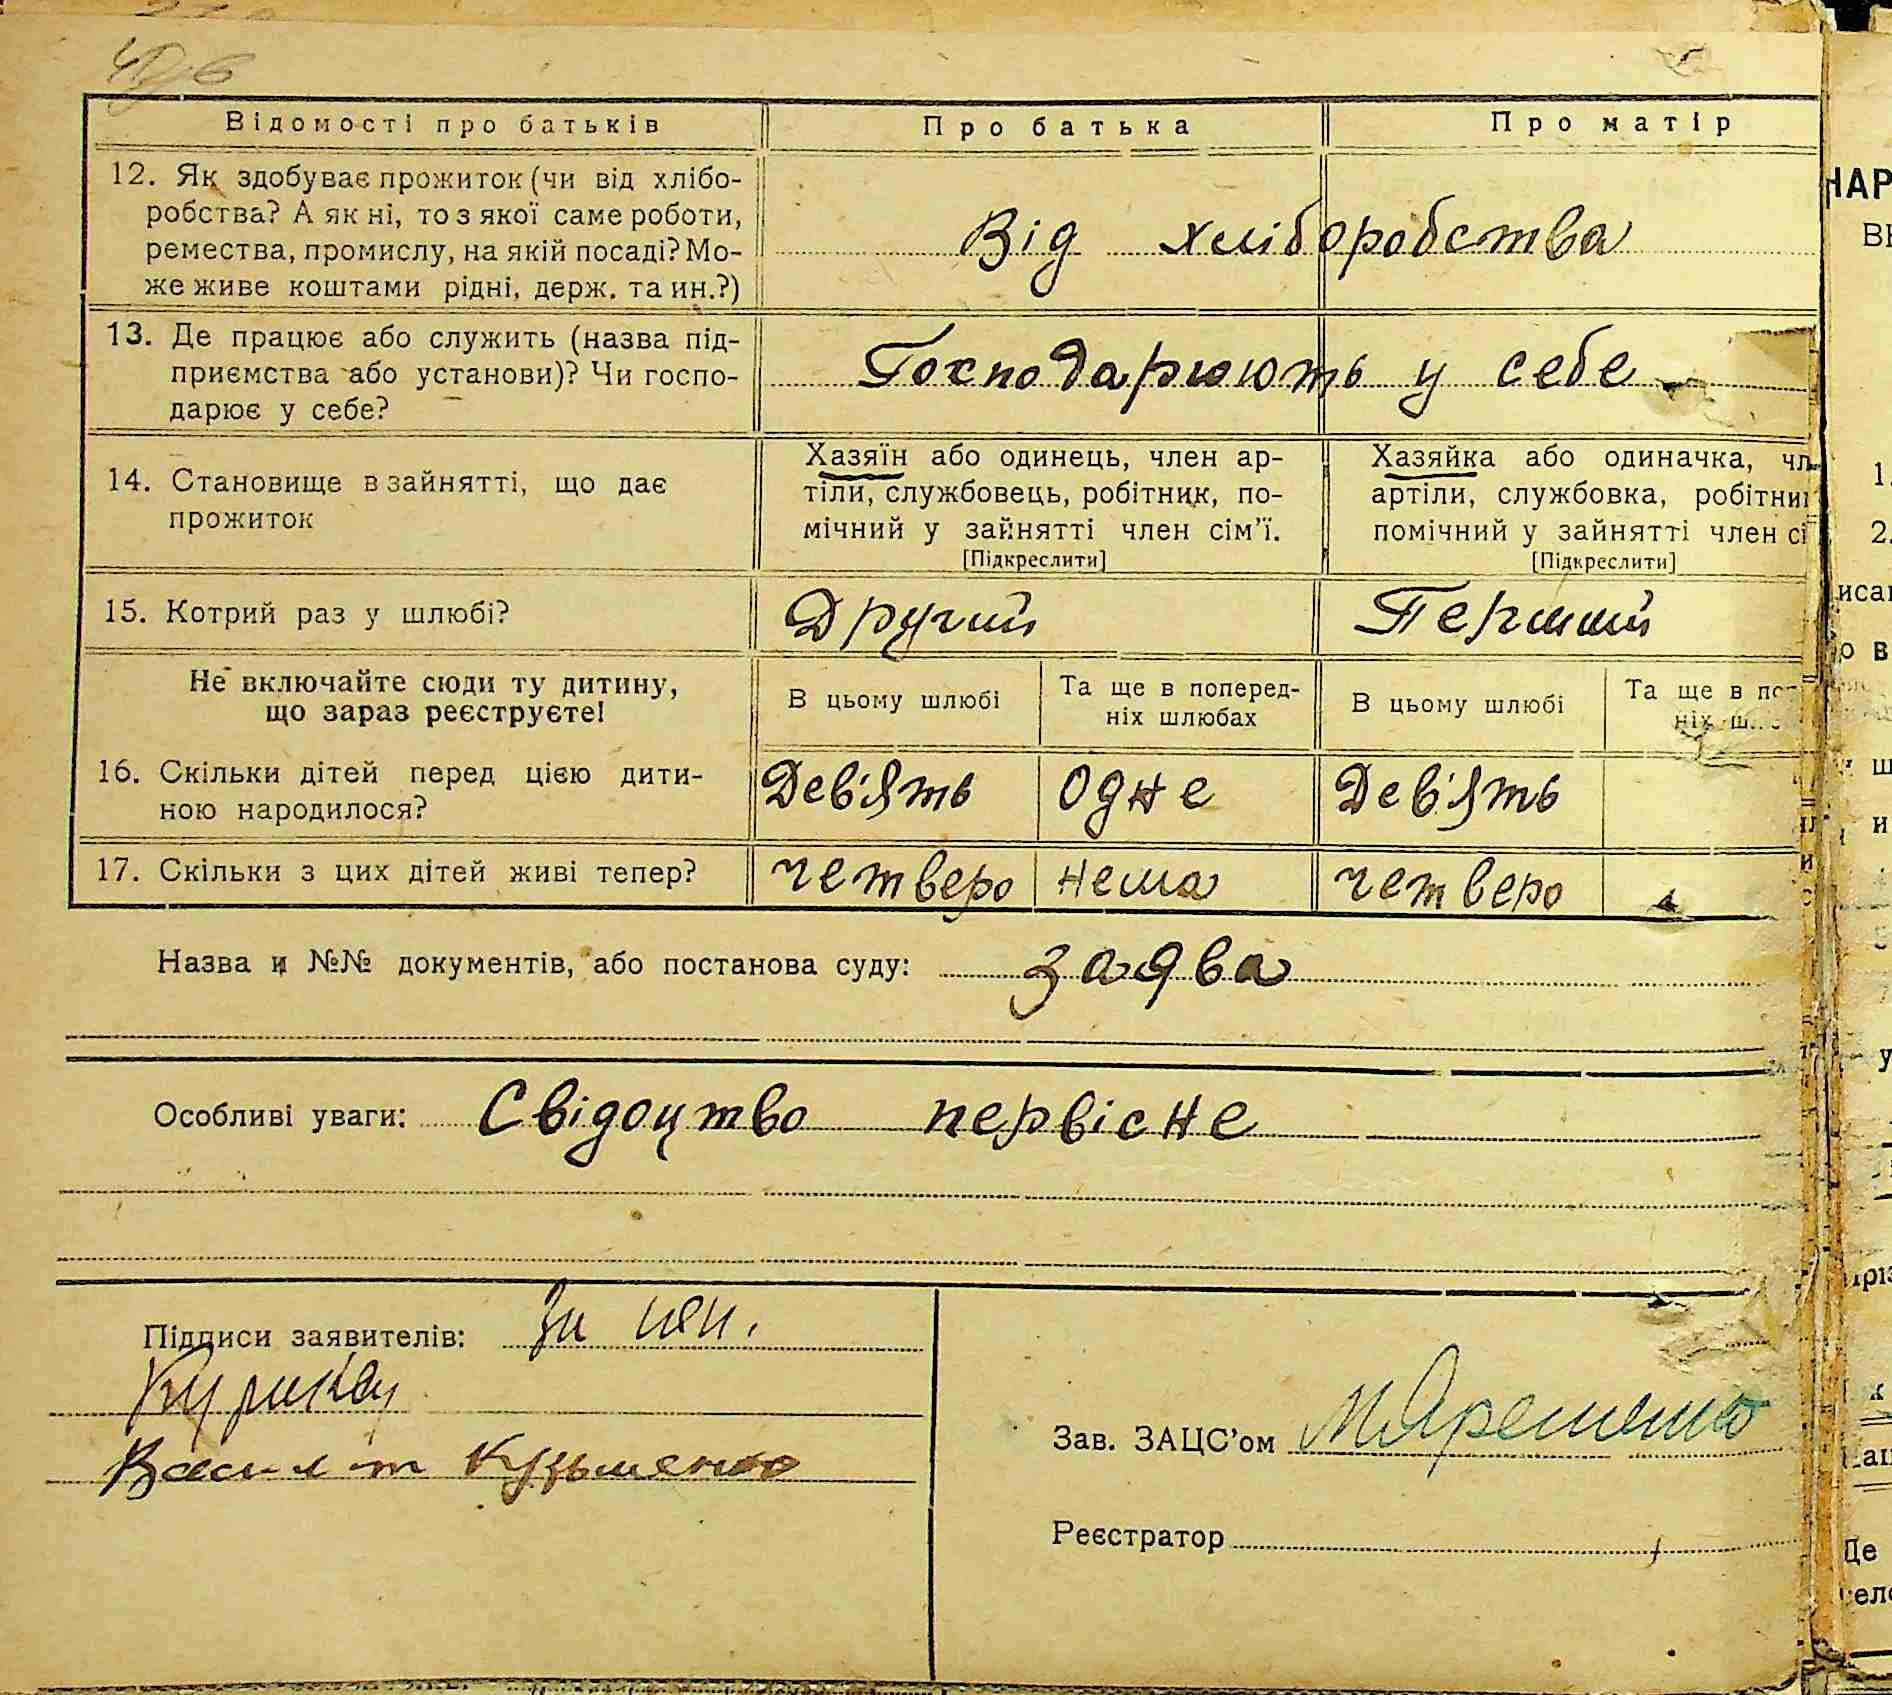 Відомості про батьків Про батька Про матір
12. Як здобуває прожиток (чи від хлібо-
робства? А як ні, то з якої саме роботи,
ремества, промислу, на якій посаді? Мо-
же живе коштами рідні, держ. та ин.?)
Від хліборобства
13. Де працює або служить (назва під-
приємства або установи)? Чи госпо-
дарює у себе?
Господарюють у себе
14. Становище в зайнятті, що дає
прожиток
Хазяїн або одинець, член ар-
тіли, службовець, робітник, по-
мічний у зайнятті член сім'ї.
[Підкреслити]
Хазяйка або одиначка, чл
артіли, службовка, робітни
помічний у зайнятті член сі
[Підкреслити]
15. Котрий раз у шлюбі?
Другий Перший
Не включайте сюди ту дитину,
що зараз реєструєте!
В цьому шлюбі
Та ще в поперед-
ніх шлюбах
В цьому шлюбі
Та ще в по
ніх ш
16. Скільки дітей перед цією дити-
ною народилося?
Дев'ять Одне Дев'ять
17. Скільки з цих дітей живі тепер?
четверо нема четверо
Назва й №№ документів, або постанова суду: заява
Особливі уваги: Свідоцтво первісне
Підписи заявителів: За
Кузьменко
Зав. ЗАЦС'ом
Реєстратор
НАР
1.
2.